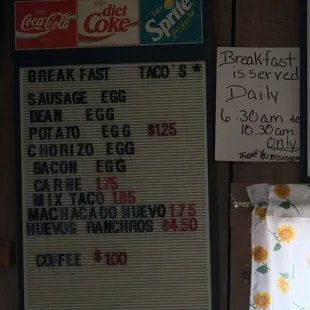 Coca-Cola
diet Coke
Sprite
BREAK FAST TACO'S *
SAUSAGE EGG
BEAN EGG
POTATO EGG $1.25
CHORIZO EGG
BACON EGG
CARNE 1.75
MIX TACO 1.65
MACHACADO HUEVO 1.75
HUEVOS RANCHROS $4.50
COFFEE $1.00
Breakfast
is served
Daily
6:30 am. to
10:30 am.
Only
Thank You Manager